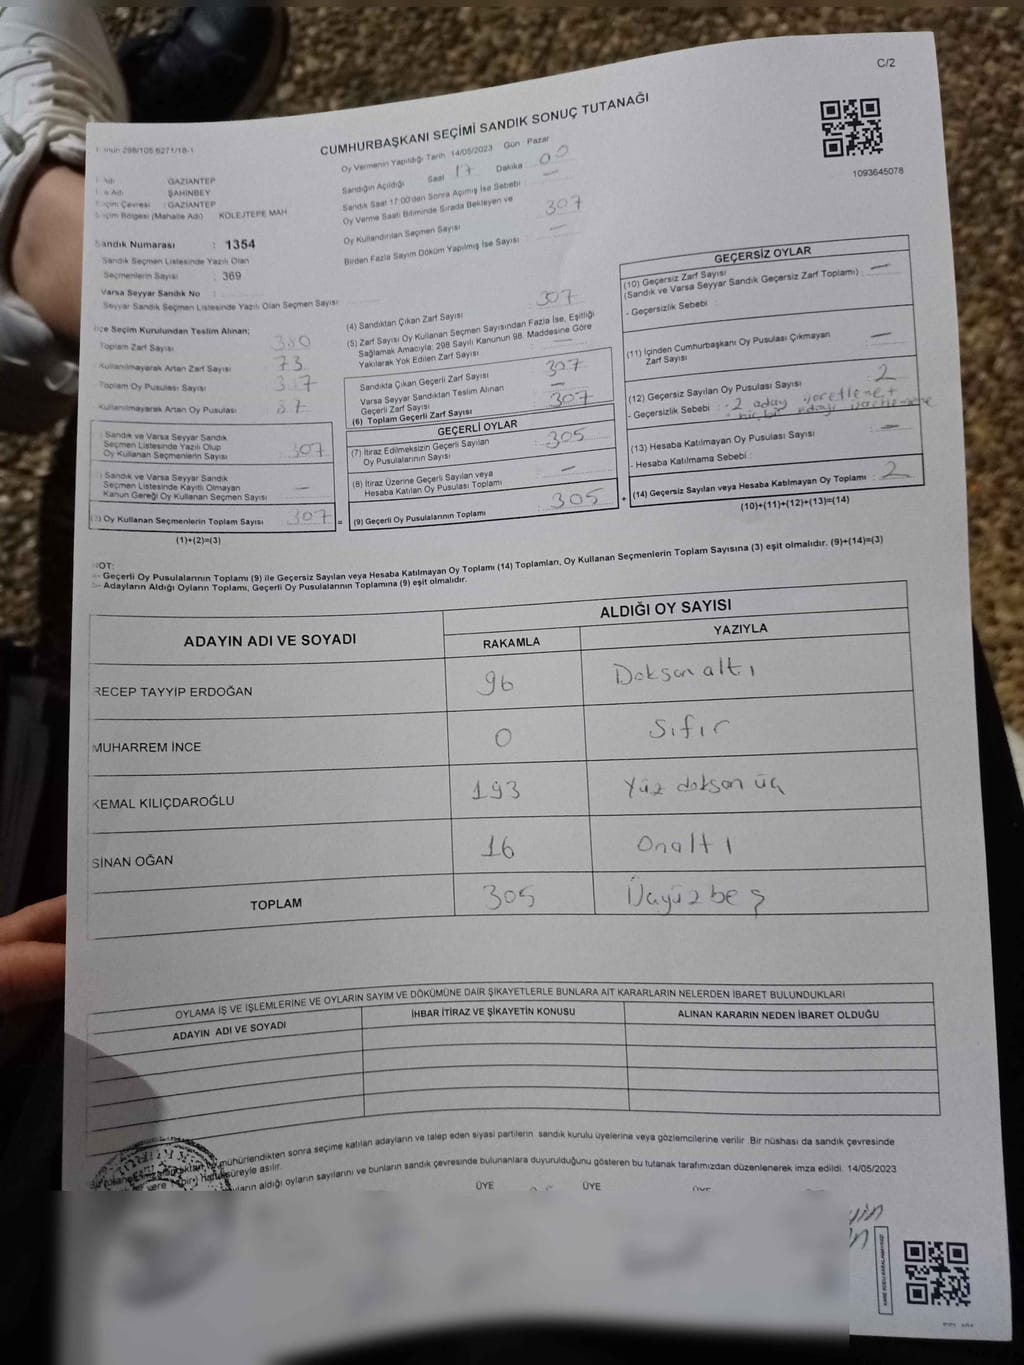 C/2
CUMHURBAŞKANI SEÇİMİ SANDIK SONUÇ TUTANAĞI
Oy Vermenin Yapıldığı Tarih 14/05/2023 Gün : Pazar
Sandığın Açıldığı Saat 17 Dakika 00
Sandık Saat 17:00'den Sonra Açılmış İse Sebebi : —
Oy Verme Saati Bitiminde Sırada Bekleyen ve
Oy Kullandırılan Seçmen Sayısı 307
Birden Fazla Sayım Döküm Yapılmış İse Sayısı : —
1093645078
GAZİANTEP
ŞAHİNBEY
Seçim Çevresi : GAZİANTEP
Seçim Bölgesi (Mahalle Adı) KOLEJTEPE MAH
Sandık Numarası : 1354
Sandık Seçmen Listesinde Yazılı Olan
Seçmenlerin Sayısı : 369
Varsa Seyyar Sandık No
Seyyar Sandık Seçmen Listesinde Yazılı Olan Seçmen Sayısı
İlçe Seçim Kurulundan Teslim Alınan;
Toplam Zarf Sayısı 380
Kullanılmayarak Artan Zarf Sayısı : 73
Toplam Oy Pusulası Sayısı
Kullanılmayarak Artan Oy Pusulası
Sandık ve Varsa Seyyar Sandık
Seçmen Listesinde Yazılı Olup
Oy Kullanan Seçmenlerin Sayısı 307
Sandık ve Varsa Seyyar Sandık
Seçmen Listesinde Kayıtlı Olmayan
Kanun Gereği Oy Kullanan Seçmen Sayısı —
(3) Oy Kullanan Seçmenlerin Toplam Sayısı 307 =
(1)+(2)=(3)
(4) Sandıktan Çıkan Zarf Sayısı 307
(5) Zarf Sayısı Oy Kullanan Seçmen Sayısından Fazla İse, Eşitliği
Sağlamak Amacıyla; 298 Sayılı Kanunun 98. Maddesine Göre
Yakılarak Yok Edilen Zarf Sayısı —
Sandıkta Çıkan Geçerli Zarf Sayısı 307
Varsa Seyyar Sandıktan Teslim Alınan
Geçerli Zarf Sayısı —
(6) Toplam Geçerli Zarf Sayısı 307
GEÇERLİ OYLAR
(7) İtiraz Edilmeksizin Geçerli Sayılan
Oy Pusulalarının Sayısı : 305
(8) İtiraz Üzerine Geçerli Sayılan veya
Hesaba Katılan Oy Pusulası Toplamı —
(9) Geçerli Oy Pusulalarının Toplamı 305 +
GEÇERSİZ OYLAR
(10) Geçersiz Zarf Sayısı
(Sandık ve Varsa Seyyar Sandık Geçersiz Zarf Toplamı) : —
- Geçersizlik Sebebi :
(11) İçinden Cumhurbaşkanı Oy Pusulası Çıkmayan
Zarf Sayısı —
(12) Geçersiz Sayılan Oy Pusulası Sayısı 2
- Geçersizlik Sebebi : 2 aday
(13) Hesaba Katılmayan Oy Pusulası Sayısı —
- Hesaba Katılmama Sebebi :
(14) Geçersiz Sayılan veya Hesaba Katılmayan Oy Toplamı : 2
(10)+(11)+(12)+(13)=(14)
NOT:
- Geçerli Oy Pusulalarının Toplamı (9) ile Geçersiz Sayılan veya Hesaba Katılmayan Oy Toplamı (14) Toplamları, Oy Kullanan Seçmenlerin Toplam Sayısına (3) eşit olmalıdır. (9)+(14)=(3)
- Adayların Aldığı Oyların Toplamı, Geçerli Oy Pusulalarının Toplamına (9) eşit olmalıdır.
ADAYIN ADI VE SOYADI
ALDIĞI OY SAYISI
RAKAMLA YAZIYLA
RECEP TAYYİP ERDOĞAN 96 Doksan altı
MUHARREM İNCE 0 Sıfır
KEMAL KILIÇDAROĞLU 193 Yüz doksan üç
SİNAN OĞAN 16 Onaltı
TOPLAM 305 Üçyüzbeş
OYLAMA İŞ VE İŞLEMLERİNE VE OYLARIN SAYIM VE DÖKÜMÜNE DAİR ŞİKAYETLERLE BUNLARA AİT KARARLARIN NELERDEN İBARET BULUNDUKLARI
ADAYIN ADI VE SOYADI İHBAR İTİRAZ VE ŞİKAYETİN KONUSU ALINAN KARARIN NEDEN İBARET OLDUĞU
mühürlendikten sonra seçime katılan adayların ve talep eden siyasi partilerin sandık kurulu üyelerine veya gözlemcilerine verilir. Bir nüshası da sandık çevresinde
süreyle asılır.
aldığı oyların sayılarını ve bunların sandık çevresinde bulunanlara duyurulduğunu gösteren bu tutanak tarafımızdan düzenlenerek imza edildi. 14/05/2023
ÜYE ÜYE